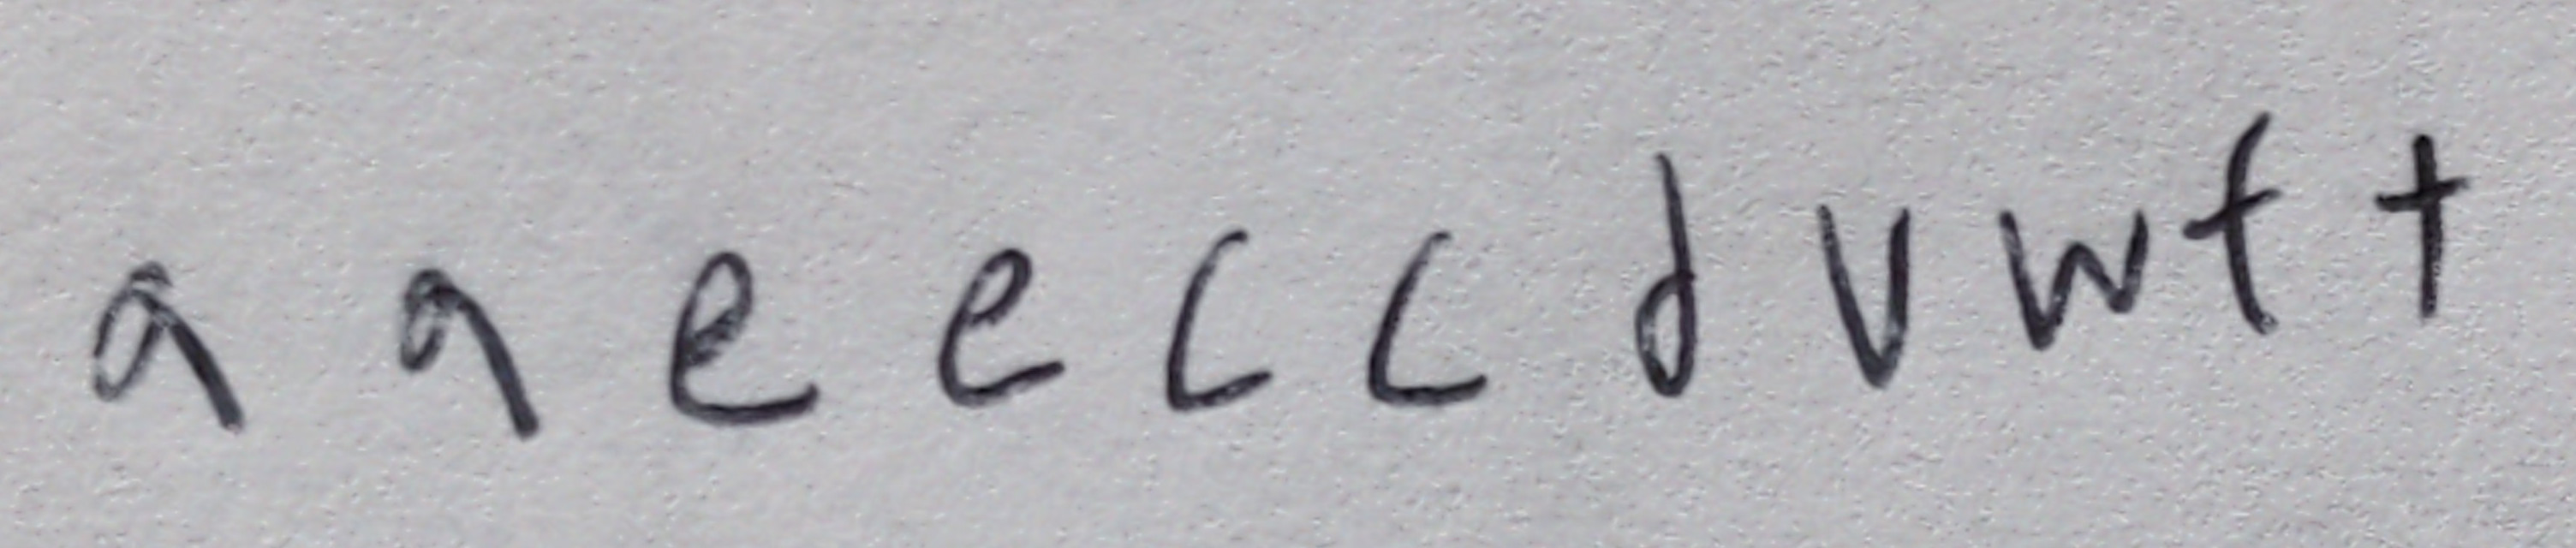 a a e e c c d v w t t